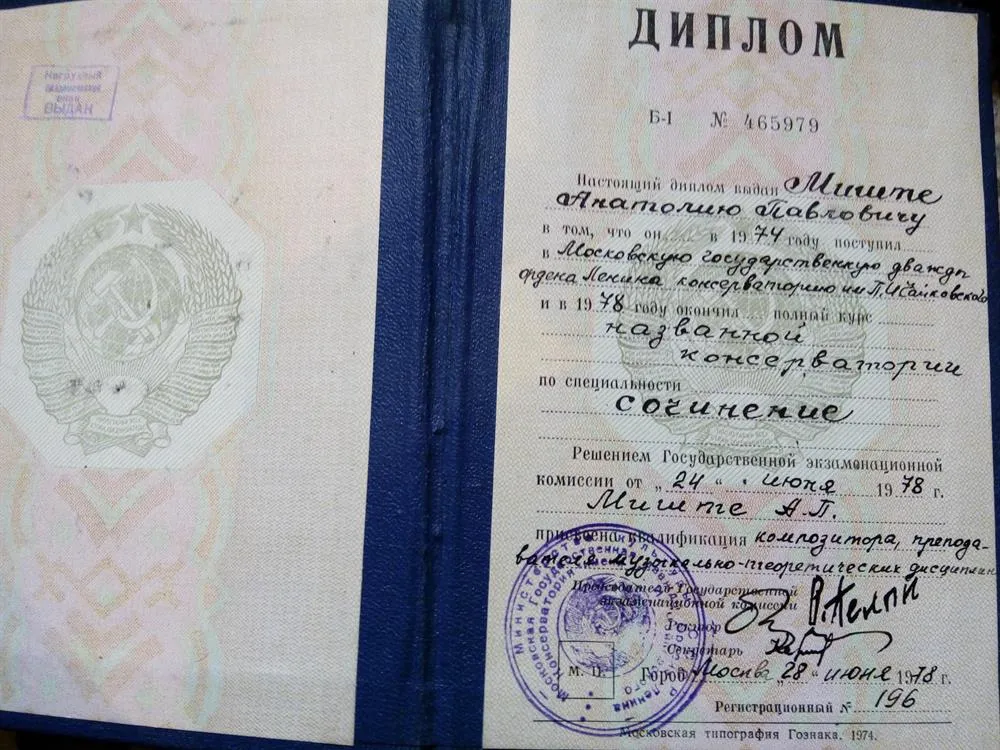 Нагрудный
академический
знак
ВЫДАН
ДИПЛОМ
Б-I № 465979
Настоящий диплом выдан Миште
Анатолию Павловичу
в том, что он в 1974 году поступил
в Московскую государственную дважды
ордена Ленина консерваторию им П.И.Чайковского
и в 1978 году окончил полный курс
названной
консерватории
по специальности
сочинение
Решением Государственной экзаменационной
комиссии от „24“ июня 1978 г.
Миште А.П.
присвоена квалификация композитора, препода-
вателя музыкально-теоретических дисциплин
Председатель Государственной
экзаменационной комиссии
Ректор
Секретарь
М. П.
Город Москва „28“ июня 1978 г.
Регистрационный № 196
Московская типография Гознака. 1974.
Министерство культуры
Московская Государственная
Консерватория
Ленина